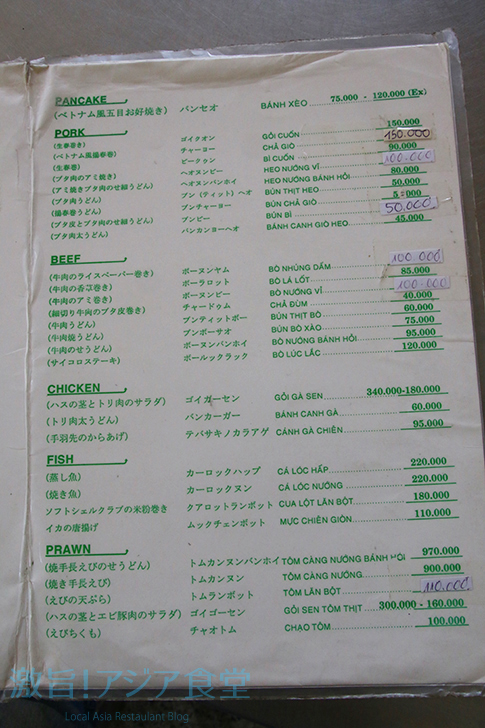 PANCAKE
(ベトナム風五目お好焼き) バンセオ BÁNH XÈO 75.000 - 120.000 (Ex)
PORK
(生春巻き) ゴイクオン GỎI CUỐN 150.000
(ベトナム風揚春巻) チャーヨー CHẢ GIÒ 150.000 90.000
(生春巻) ビークゥン BÌ CUỐN 100.000
(ブタ肉のアミ焼き) ヘオヌンビー HEO NƯỚNG VĨ 80.000
(アミ焼きブタ肉のせ細うどん) ヘオヌンバンホイ HEO NƯỚNG BÁNH HỎI 50.000
(ブタ肉うどん) ブン (ティット) ヘオ BÚN THỊT HEO
(揚春巻うどん) ブンチャーヨー BÚN CHẢ GIÒ 50.000
(ブタ皮とブタ肉のせ細うどん) ブンビー BÚN BÌ 45.000
(ブタ肉太うどん) バンカンヨーヘオ BÁNH CANH GIÒ HEO
BEEF
(牛肉のライスペーパー巻き) ボーヌンヤム BÒ NHÚNG DẤM 100.000
(牛肉の香草巻き) ボーラロット BÒ LÁ LỐT 85.000
(牛肉のアミ巻き) ボーヌンビー BÒ NƯỚNG VĨ 100.000
(細切り牛肉のブタ皮巻き) チャードゥム CHẢ ĐÙM 40.000
(牛肉うどん) ブンティットボー BÚN THỊT BÒ 60.000
(牛肉焼うどん) ブンボーサオ BÚN BÒ XÀO 75.000
(牛肉のせうどん) ボーヌンバンホイ BÒ NƯỚNG BÁNH HỎI 95.000
(サイコロステーキ) ボールックラック BÒ LÚC LẮC 120.000
CHICKEN
(ハスの茎とトリ肉のサラダ) ゴイガーセン GỎI GÀ SEN 340.000-180.000
(トリ肉太うどん) バンカーガー BÁNH CANH GÀ 60.000
(手羽先のからあげ) テバサキノカラアゲ CÁNH GÀ CHIÊN 95.000
FISH
(蒸し魚) カーロックハップ CÁ LÓC HẤP 220.000
(焼き魚) カーロックヌン CÁ LÓC NƯỚNG 220.000
ソフトシェルクラブの米粉巻き クアロットランボット CUA LỘT LĂN BỘT 180.000
イカの唐揚げ ムックチェンボット MỰC CHIÊN GIÒN 110.000
PRAWN
(焼手長えびのせうどん) トムカンヌンバンホイ TÔM CÀNG NƯỚNG BÁNH HỎI 970.000
(焼き手長えび) トムカンヌン TÔM CÀNG NƯỚNG 900.000
(えびの天ぷら) トムランボット TÔM LĂN BỘT 110.000
(ハスの茎とエビ豚肉のサラダ) ゴイゴーセン GỎI SEN TÔM THỊT 300.000 - 160.000
(えびちくも) チャオトム CHẠO TÔM 100.000
激旨!アジア食堂
Local Asia Restaurant Blog